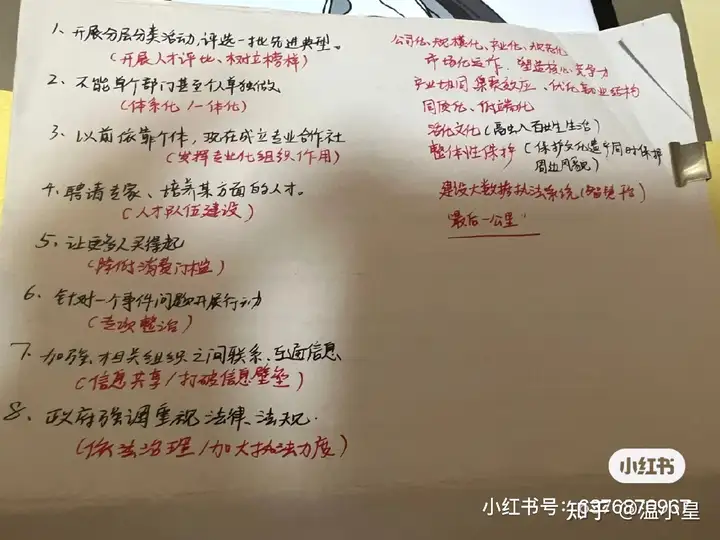 1、开展分层分类活动,评选一批先进典型。
(开展人才评比、树立榜样)
2、不能单个部门甚至个单独做
(体系化/一体化)
3、以前依靠个体,现在成立专业合作社
(发挥专业化组织作用)
4、聘请专家、培养某方面的人才。
(人才队伍建设)
5、让更多人买得起
(降低消费门槛)
6、针对一个事件问题开展行动
(专项整治)
7、加强相关组织之间联系、互通信息
(信息共享/打破信息壁垒)
8、政府强调重视法律、法规.
(依法治理/加大执法力度)
公司化、规模化、产业化、规范化
市场化运作、塑造核心竞争力
产业协同集聚效应、优化产业结构
同质化、低端化
活化文化(高出入百姓生活)
整体性保护(保护文化遗产同时保护
周边风貌)
建设大数据执法系统(智慧平台)
"最后一公里"
小红书
小红书号:6376870967
知乎 @温小星